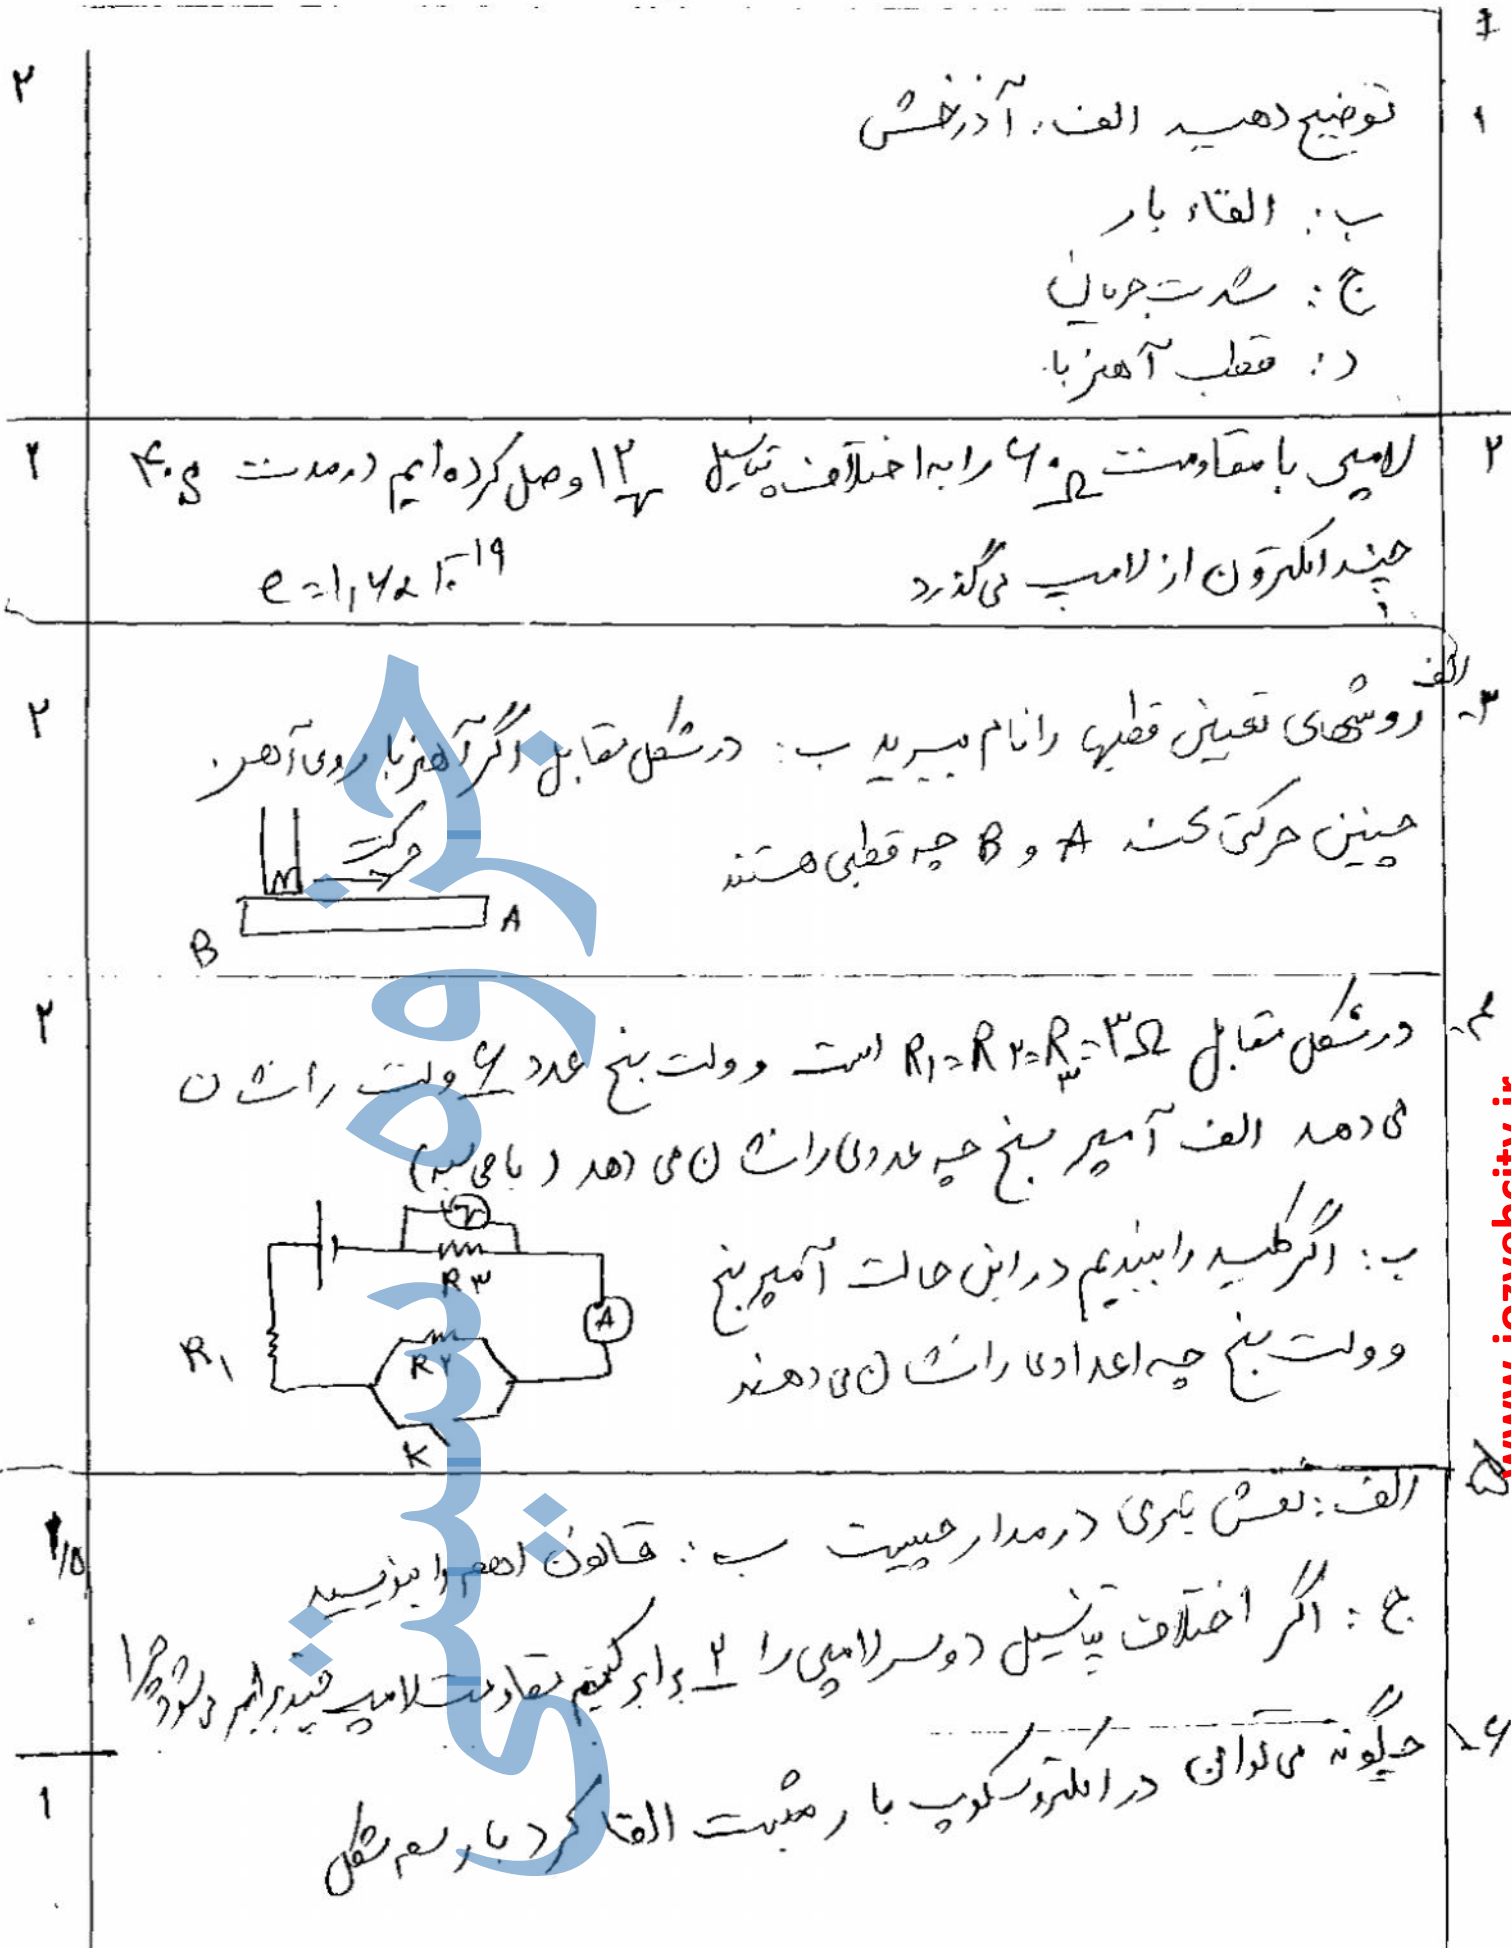 ۱
۲
توضیح دهید الف: آذرخش
ب: القاء بار
ج: شدت جریان
د: قطب آهنربا
۲
۲
لامپی با مقاومت ۶۰Ω را به اختلاف پتانسیل ۱۲v وصل کرده‌ایم در مدت ۴۰s
چند الکترون از لامپ می‌گذرد
e=۱,۶×۱۰⁻¹⁹
۳-
۲
الف
روشهای تعیین قطبها را نام ببرید ب: در شکل مقابل اگر آهنربا روی آهن
چنین حرکتی کند A و B چه قطبی هستند
حرکت
N
B
A
۴-
۲
در شکل مقابل R۱=R۲=R۳=۳Ω است و ولت سنج عدد ۶ ولت را نشان
می دهد الف آمپر سنج چه عددی را نشان می دهد (با محاسبه)
ب: اگر کلید را ببندیم در این حالت آمپر سنج
و ولت سنج چه اعدادی را نشان می دهند
V
R۳
A
R۱
R۲
K
۵
۱/۵
الف: نقش باتری در مدار چیست ب: قانون اهم را بنویسید
ج: اگر اختلاف پتانسیل دو سر لامپی را ۲ برابر کنیم مقاومت لامپ چند برابر می‌شود چرا
۶-
۱
چگونه می توان در الکتروسکوپ بار مثبت القا کرد با رسم شکل
جزوه سیتی
www.jozvehcity.ir